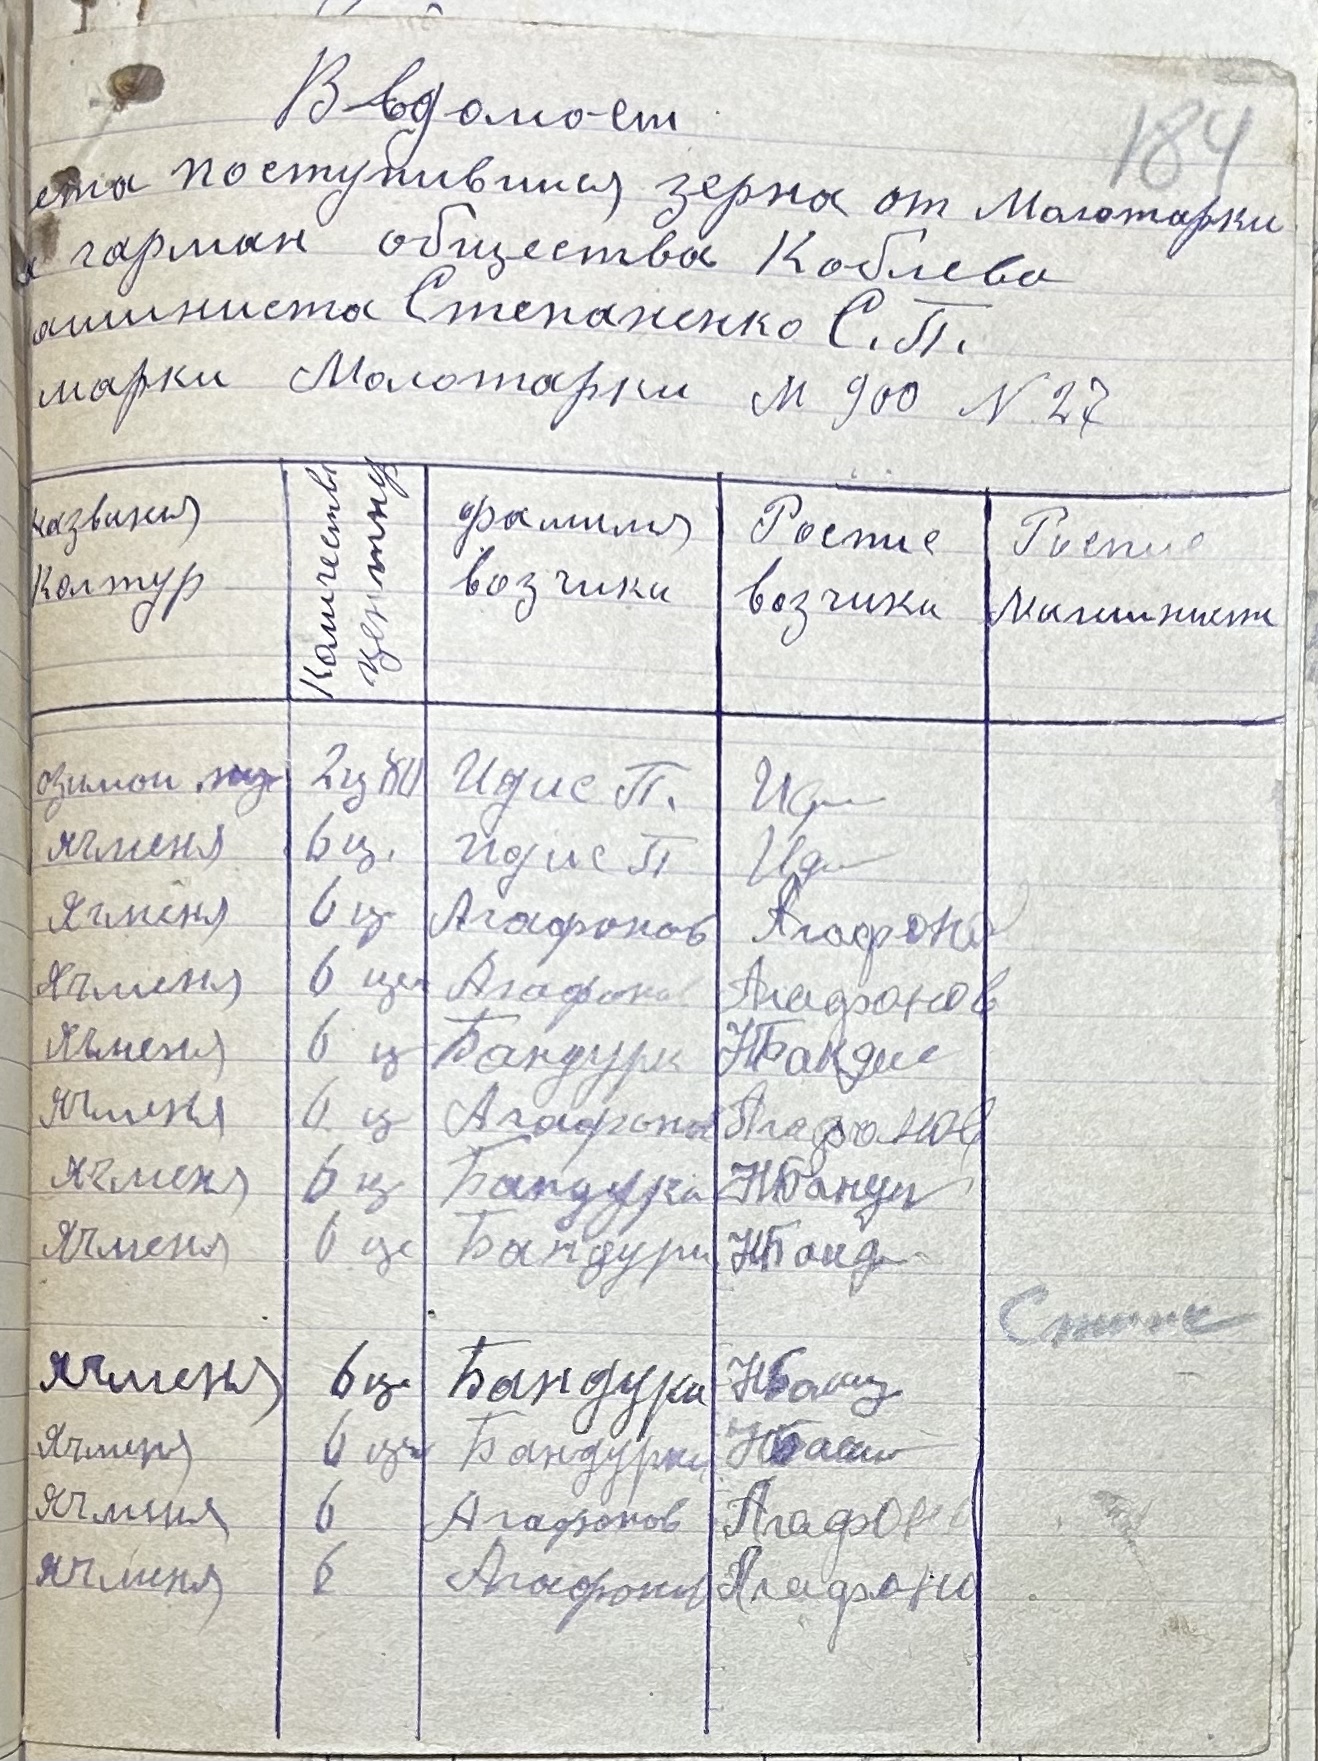 184
Ввдомост
ста поступившия зерна от Молотарки
гарман общества Коблева
ашиниста Степаненко С.П.
марки Молотарки М 900 N 27
названия Колтур Количество центнер фамилия возчики Роспис возчики Роспис Машиниста
озимои 2ц Идис П. Ид
ячменя 6 ц. Идис П Ид
Ячменя 6 ц Агафонов Агафонов
Ячменя 6 цен Агафонов Агафонов
Ячменя 6 ц Бандурк
Ячменя 6 ц Агафонов Агафонов
Ячменя 6 ц Бандурки
Ячменя 6 це Бандури НБанд
Ячменя 6 ц. Бандурки
Ячменя 6 цен Бандурки
Ячменя 6 Агафонов Агафонов
Ячменя 6 Агафонов Агафоно